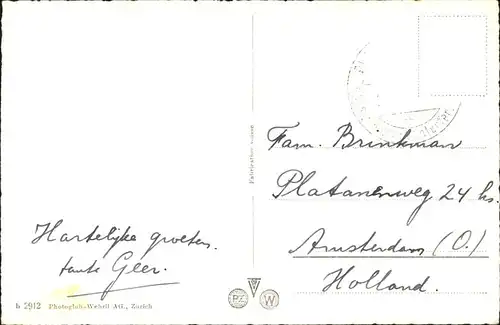 Hartelijke groeten.
tante Geer.
Fam. Brinkman
Platanenweg 24 hs.
Amsterdam (O.)
Holland.
b 2912 Photoglob-Wehrli AG., Zürich
PZ
W